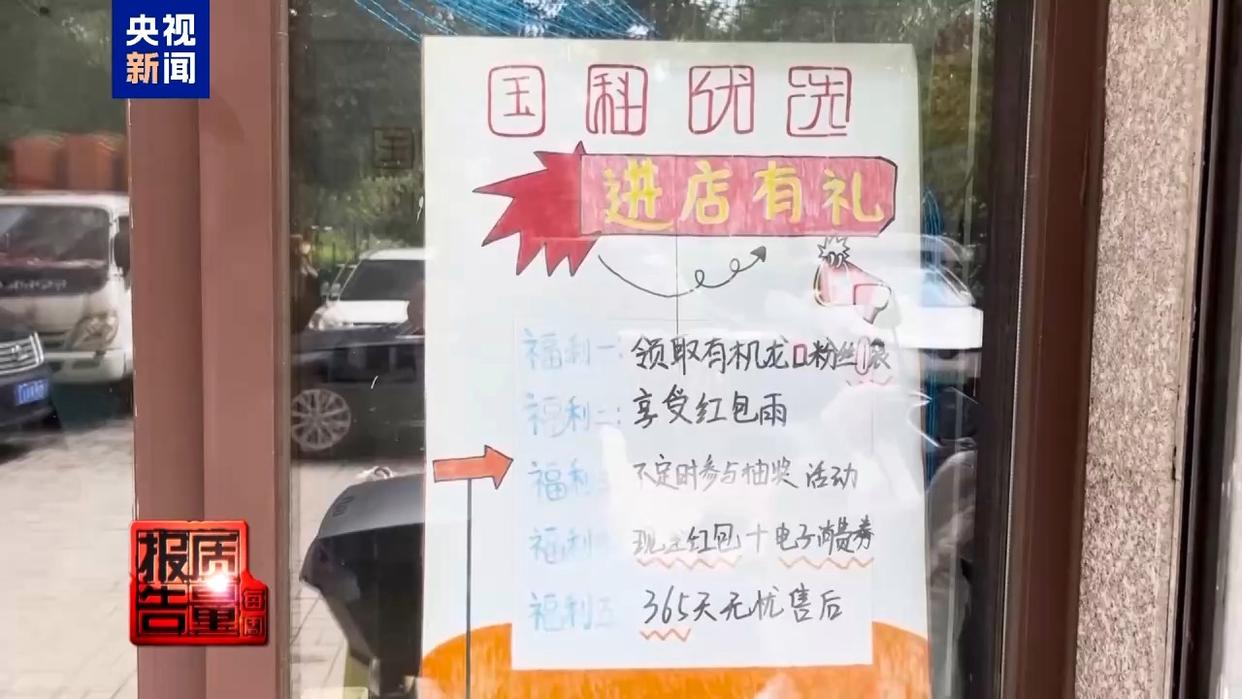 央视
新闻
国科优选
进店有礼
福利一：领取有机龙口粉丝1袋
福利二：享受红包雨
福利三：不定时参与抽奖活动
福利四：现金红包+电子消费券
福利五：365天无忧售后
每周
质量
报告